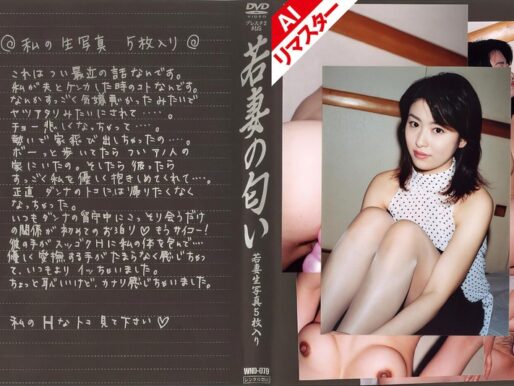 @ 私の生写真 5枚入り @
これはつい最近の話なんです。
私が夫とケンカした時のコトなんです。
なんかすっごく
ヤツアタリみたいにされて‥‥。
チョー悲しくなっちゃって‥‥。
勢いで家飛び出しちゃったの‥‥。
ボーっと歩いてたら ついつい人の
家にいたの。そしたら彼ったら
すっごく私を優しく抱きしめてくれて‥‥。
正直 ダンナのトコには帰りたくなく
なっちゃった。
いつもダンナの留守中にこっそり会うだけ
の関係が初めてのお泊り♡もうサイコー!
彼の手がスッゴクHに私の体を包んで‥‥
優しく愛撫する手がたまらなく感じちゃっ
て、いつもより イッちゃいました。
ちょっと恥しいけど、カナリ感じちゃいました。
私のHなトコ 見て下さい♡
DVD
VIDEO
若妻の匂い
若妻生写真5枚入り
WHD-079
AI
リマスター